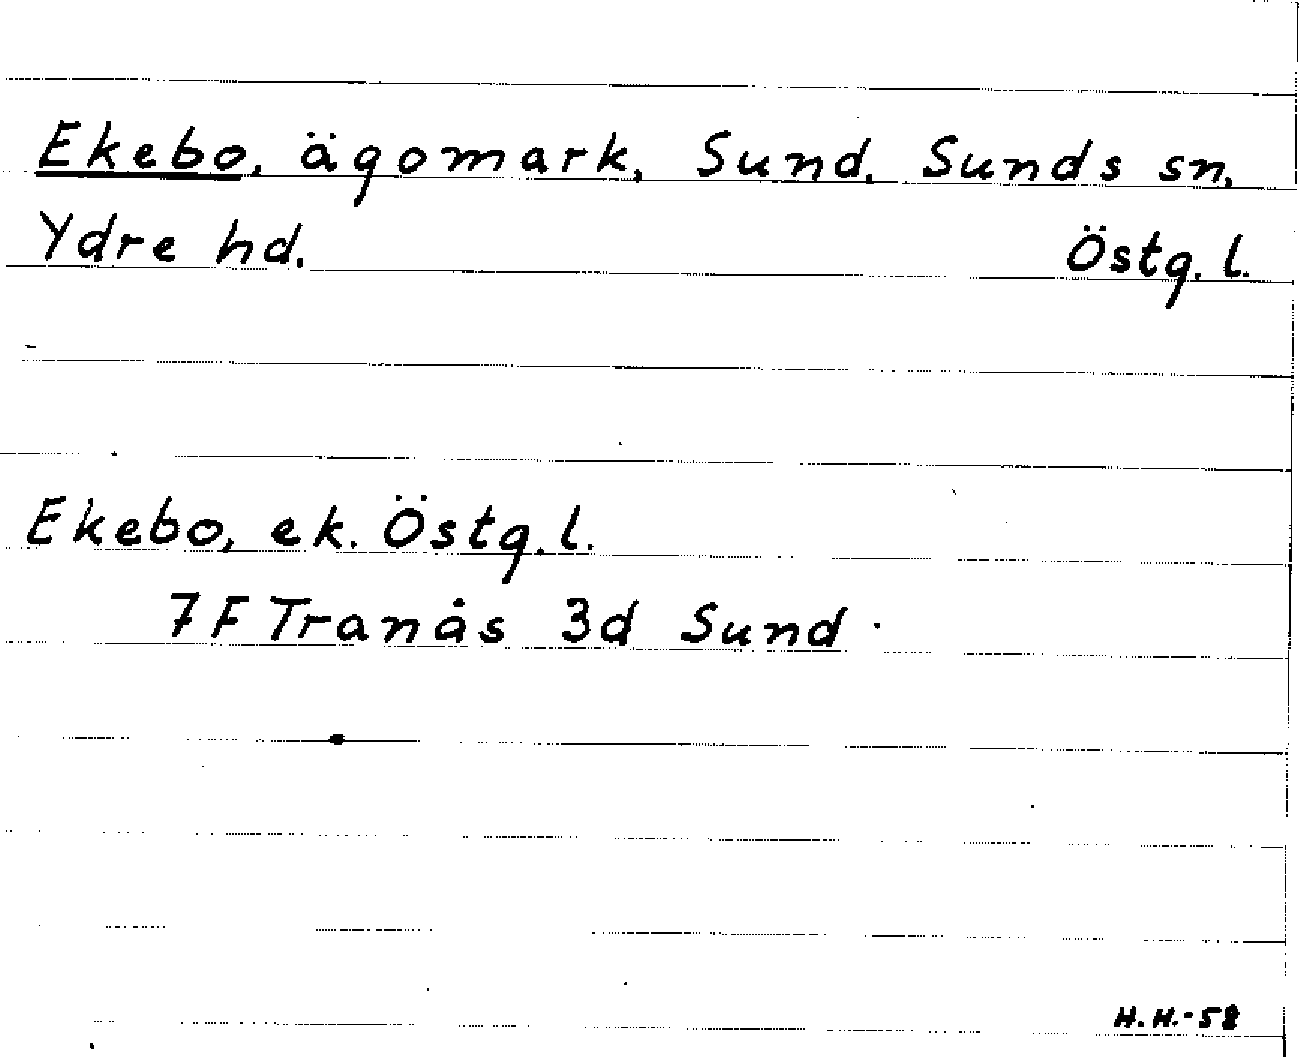 Ekebo, ägomark, Sund. Sunds sn,
Ydre hd. Östg. l.
Ekebo, ek. Östg. l.
7F Tranås 3d Sund.
H.H.-58